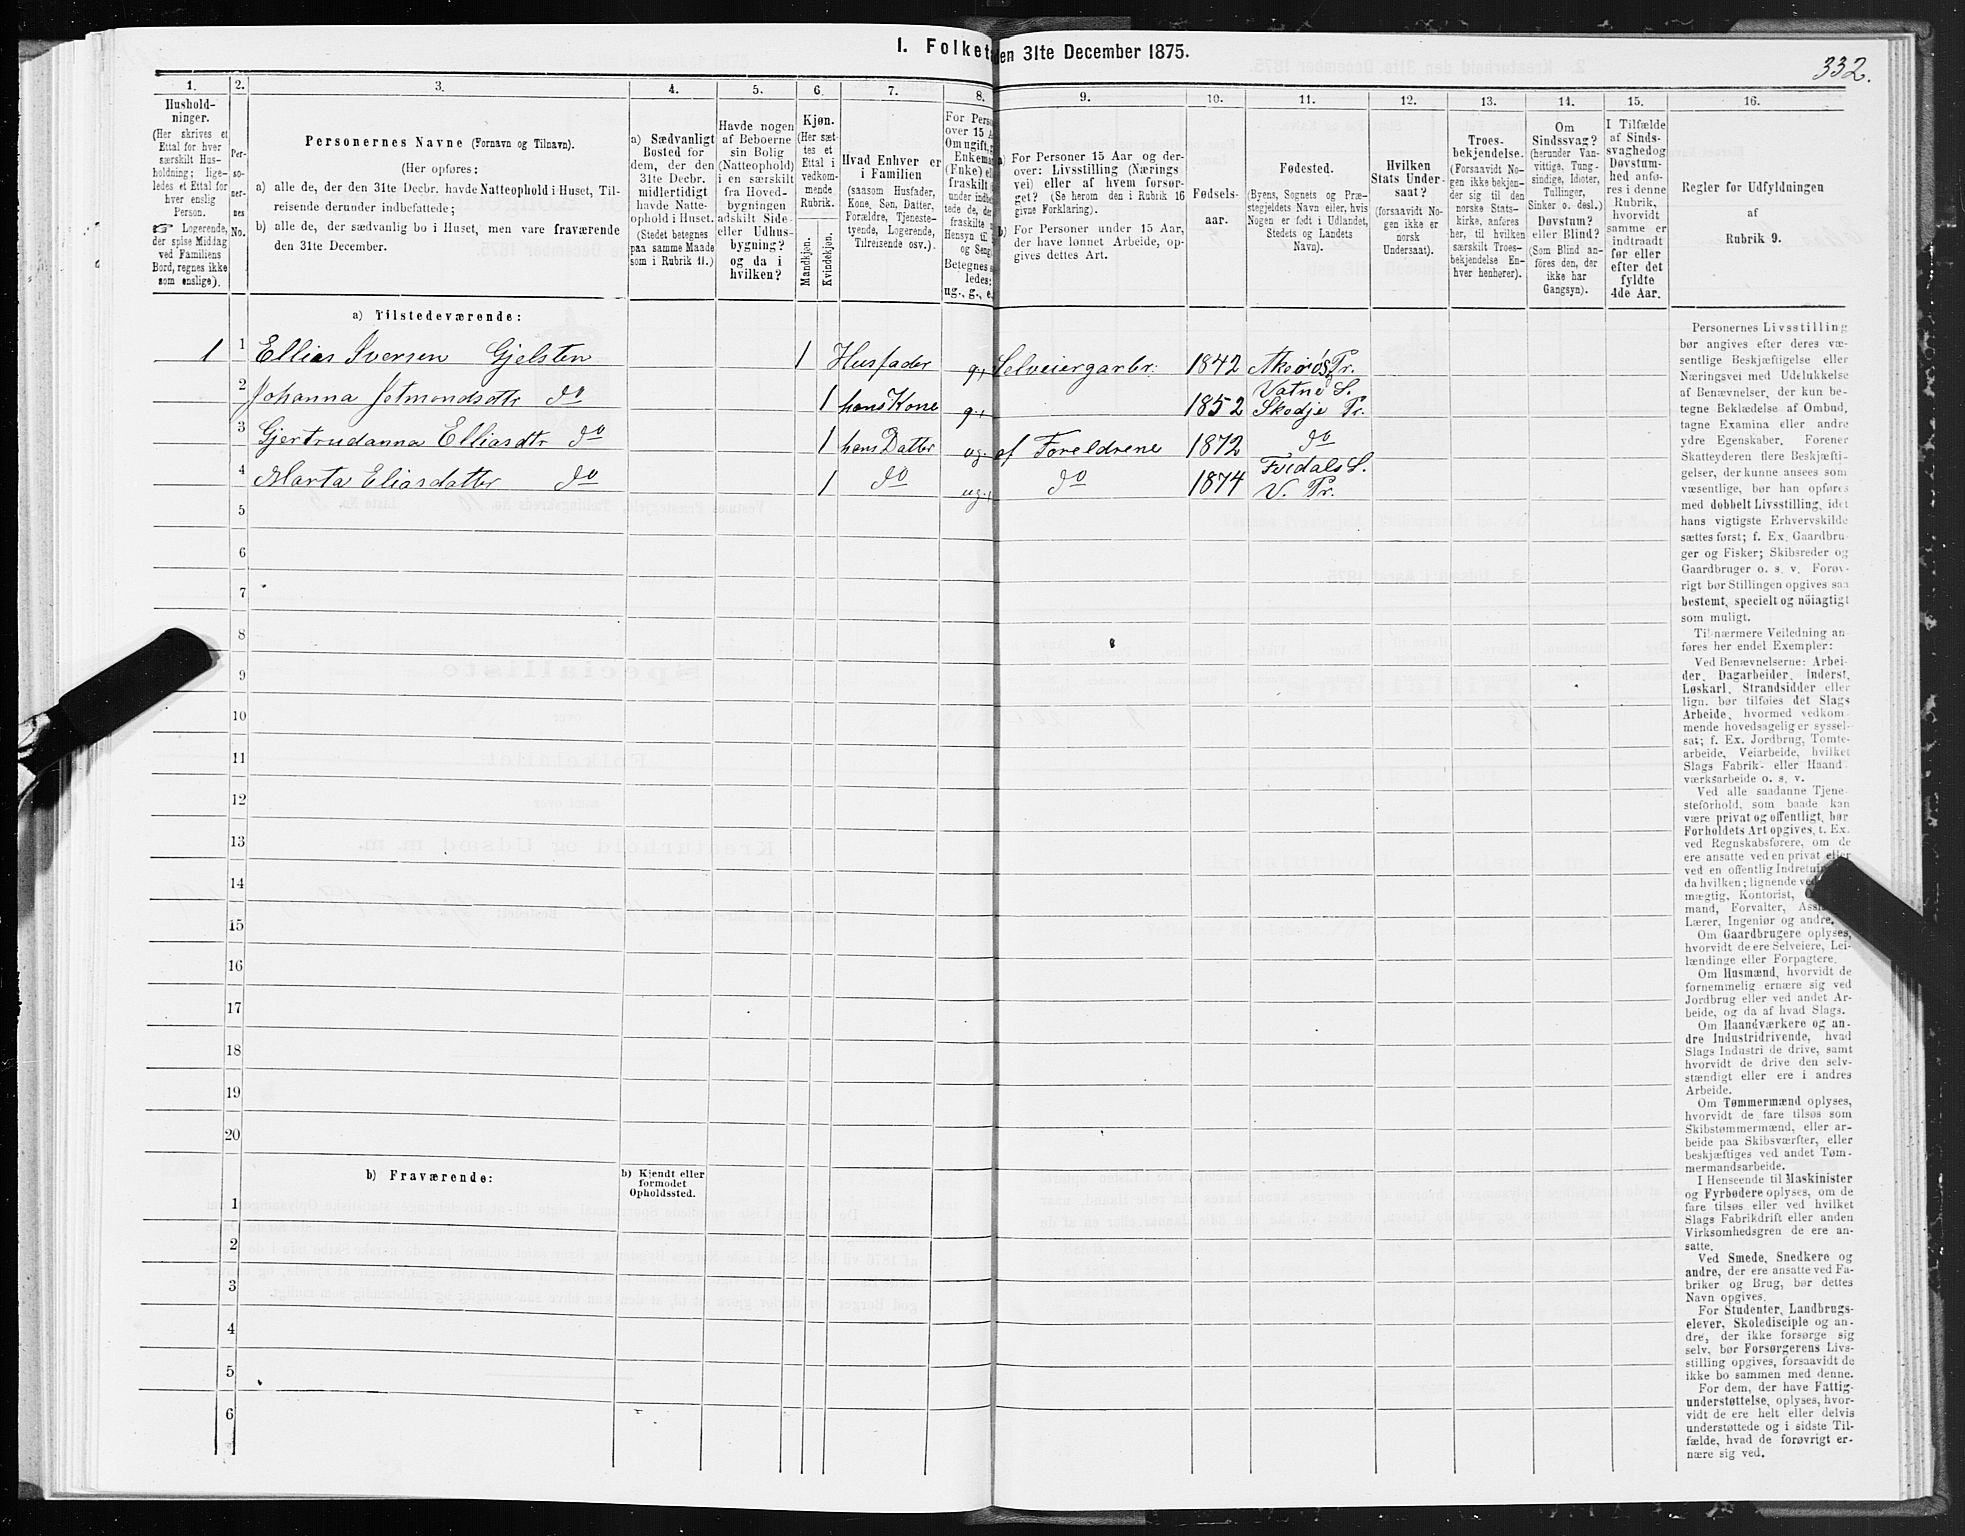 I. Folket
den 31te December 1875.
332.
1.
2.
3.
4.
5.
6.
7.
8.
9.
10.
11.
12.
13.
14.
15.
16.
Hushold-
ninger.
(Her skrives et
Ettal for hver
særskilt Hus-
holdning; lige-
ledes et Ettal for
hver enslig
Person.
☞ Logerende,
der spise Middag
ved Familiens
Bord, regnes ikke
som enslige).
Per-
so-
ner-
nes
No.
Personernes Navne (Fornavn og Tilnavn).
(Her opføres:
a) alle de, der den 31te Decbr. havde Natteophold i Huset, Til-
reisende derunder indbefattede;
b) alle de, der sædvanlig bo i Huset, men vare fraværende
den 31te December.
a) Sædvanligt
Bosted for
dem, der den
31te Decbr.
midlertidigt
havde Natte-
ophold i Huset.
(Stedet betegnes
paa samme Maade
som i Rubrik 11.)
Havde nogen
af Beboerne
sin Bolig
(Natteophold)
i en særskilt
fra Hoved-
bygningen
adskilt Side-
eller Udhus-
bygning?
og da i
hvilken?
Kjøn.
(Her sæt-
tes et
Ettal i
vedkom-
mende
Rubrik.
Mandkjøn.
Kvindekjøn.
Hvad Enhver er
i Familien
(saasom Husfader,
Kone, Søn, Datter,
Forældre, Tjeneste-
tyende, Logerende,
Tilreisende osv.).
For Perso
over 15 A
Om ugift, g
Enkeman
(Enke) el
fraskilt
under indbe
tede de, der
fraskilte
Hensyn til
og Seng
Betegnes s
ledes:
ug., g., e.
a) For Personer 15 Aar og der-
over: Livsstilling (Nærings
vei) eller af hvem forsør-
get? (Se herom den i Rubrik 16
givne Forklaring).
b) For Personer under 15 Aar,
der have lønnet Arbeide, op-
gives dettes Art.
Fødsels-
aar.
Fødested.
(Byens, Sognets og Præ-
stegjeldets Navn eller, hvis
Nogen er født i Udlandet,
Stedets og Landets
Navn).
Hvilken
Stats Under-
saat?
(forsaavidt No-
gen ikke er
norsk
Undersaat).
Troes-
bekjendelse.
(Forsaavidt No-
gen ikke bekjen-
der sig til den
norske Stats-
kirke, anføres
her, til hvilken
særskilt Troes-
bekjendelse En-
hver henhører).
Om
Sindssvag?
(herunder Van-
vittige, Tung-
sindige, Idioter,
Tullinger,
Sinker o. desl.)
Døvstum?
eller Blind?
(Som Blind an-
føres den, der
ikke har
Gangsyn).
I Tilfælde
af Sinds-
svaghedog
Døvstum-
hed anfø-
res i denne
Rubrik,
hvorvidt
samme er
indtraadt
før eller
efter det
fyldte
4de Aar.
Regler for Udfyldningen
af
Rubrik 9.
a) Tilstedeværende:
1 1 Ellias Iversen Gjelsten 1 Husfader g. Selveiergarbr. 1842 Akerø Pr.
2 Johanna Jetmundsdtr do 1 hans Kone g. 1852 Vatne S. Skodje Pr.
3 Gjertrudanna Elliasdtr do 1 hans Datter ug. af Foreldrene 1872 do
4 Marta Eliasdatter do 1 do ug. do 1874 S. V. Pr.
5
6
7
8
9
10
11
12
13
14
15
16
17
18
19
20
b) Fraværende:
b) Kjendt eller
formodet
Opholdssted.
1
2
3
4
5
6
Personernes Livsstilling
bør angives efter deres væ-
sentlige Beskjæftigelse eller
Næringsvei med Udelukkelse
af Benævnelser, der kun be-
tegne Beklædelse af Ombud,
tagne Examina eller andre
ydre Egenskaber. Forener
Skatteyderen flere Beskjæfti-
gelser, der kunne ansees som
væsentlige, bør han opføres
med dobbelt Livsstilling, idet
hans vigtigste Erhvervskilde
sættes først; f. Ex. Gaardbru-
ger og Fisker; Skibsreder og
Gaardbruger o. s. v. Forøv-
rigt bør Stillingen opgives saa
bestemt, specielt og nøiagtigt
som muligt.
Til nærmere Veiledning an-
føres her endel Exempler:
Ved Benævnelserne: Arbei-
der, Dagarbeider, Inderst,
Løskarl, Strandsidder eller
lign. bør tilføies det Slags
Arbeide, hvormed vedkom-
mende hovedsagelig er syssel-
sat; f. Ex. Jordbrug, Tomte-
arbeide, Veiarbeide, hvilket
Slags Fabrik- eller Haand
værksarbeide o. s. v.
Ved alle saadanne Tjene-
steforhold, som baade kan
være privat og offentligt, bør
Forholdets Art opgives, t. Ex.
ved Regnskabsførere, om de
ere ansatte ved en privat eller
ved en offentlig Indretning
da hvilken; lignende ved
mægtig, Kontorist,
mand, Forvalter,
Lærer, Ingeniør og andre.
Om Gaardbrugere oplyses,
hvorvidt de ere Selveiere, Lei-
lændinge eller Forpagtere.
Om Husmænd, hvorvidt de
fornemmelig ernære sig ved
Jordbrug eller ved andet Ar-
beide, og da af hvad Slags.
Om Haandværkere og an-
dre Industridrivende, hvad
Slags Industri de drive, samt
hvorvidt de drive den selv-
stændigt eller ere i andres
Arbeide.
Om Tømmermænd oplyses,
hvorvidt de fare tilsøs som
Skibstømmermænd, eller ar-
beide paa Skibsværfter, eller
beskjæftiges ved andet Tøm-
mermandsarbeide.
I Henseende til Maskinister
og Fyrbødere oplyses, om de
fare tilsøs eller ved hvilket
Slags Fabrikdrift eller anden
Virksomhedsgren de ere an-
satte.
Ved Smede, Snedkere og
andre, der ere ansatte ved Fa-
briker og Brug, bør dettes
Navn opgives.
For Studenter, Landbrugs-
elever, Skoledisciple og an-
dre, der ikke forsørge sig
selv, bør Forsørgerens Livs-
stilling opgives, forsaavidt de
ikke bo sammen med denne.
For dem, der have Fattig-
understøttelse, oplyses, hvor-
vidt de ere helt eller delvis
understøttede og i sidste Til-
fælde, hvad de forøvrigt er-
nære sig ved.